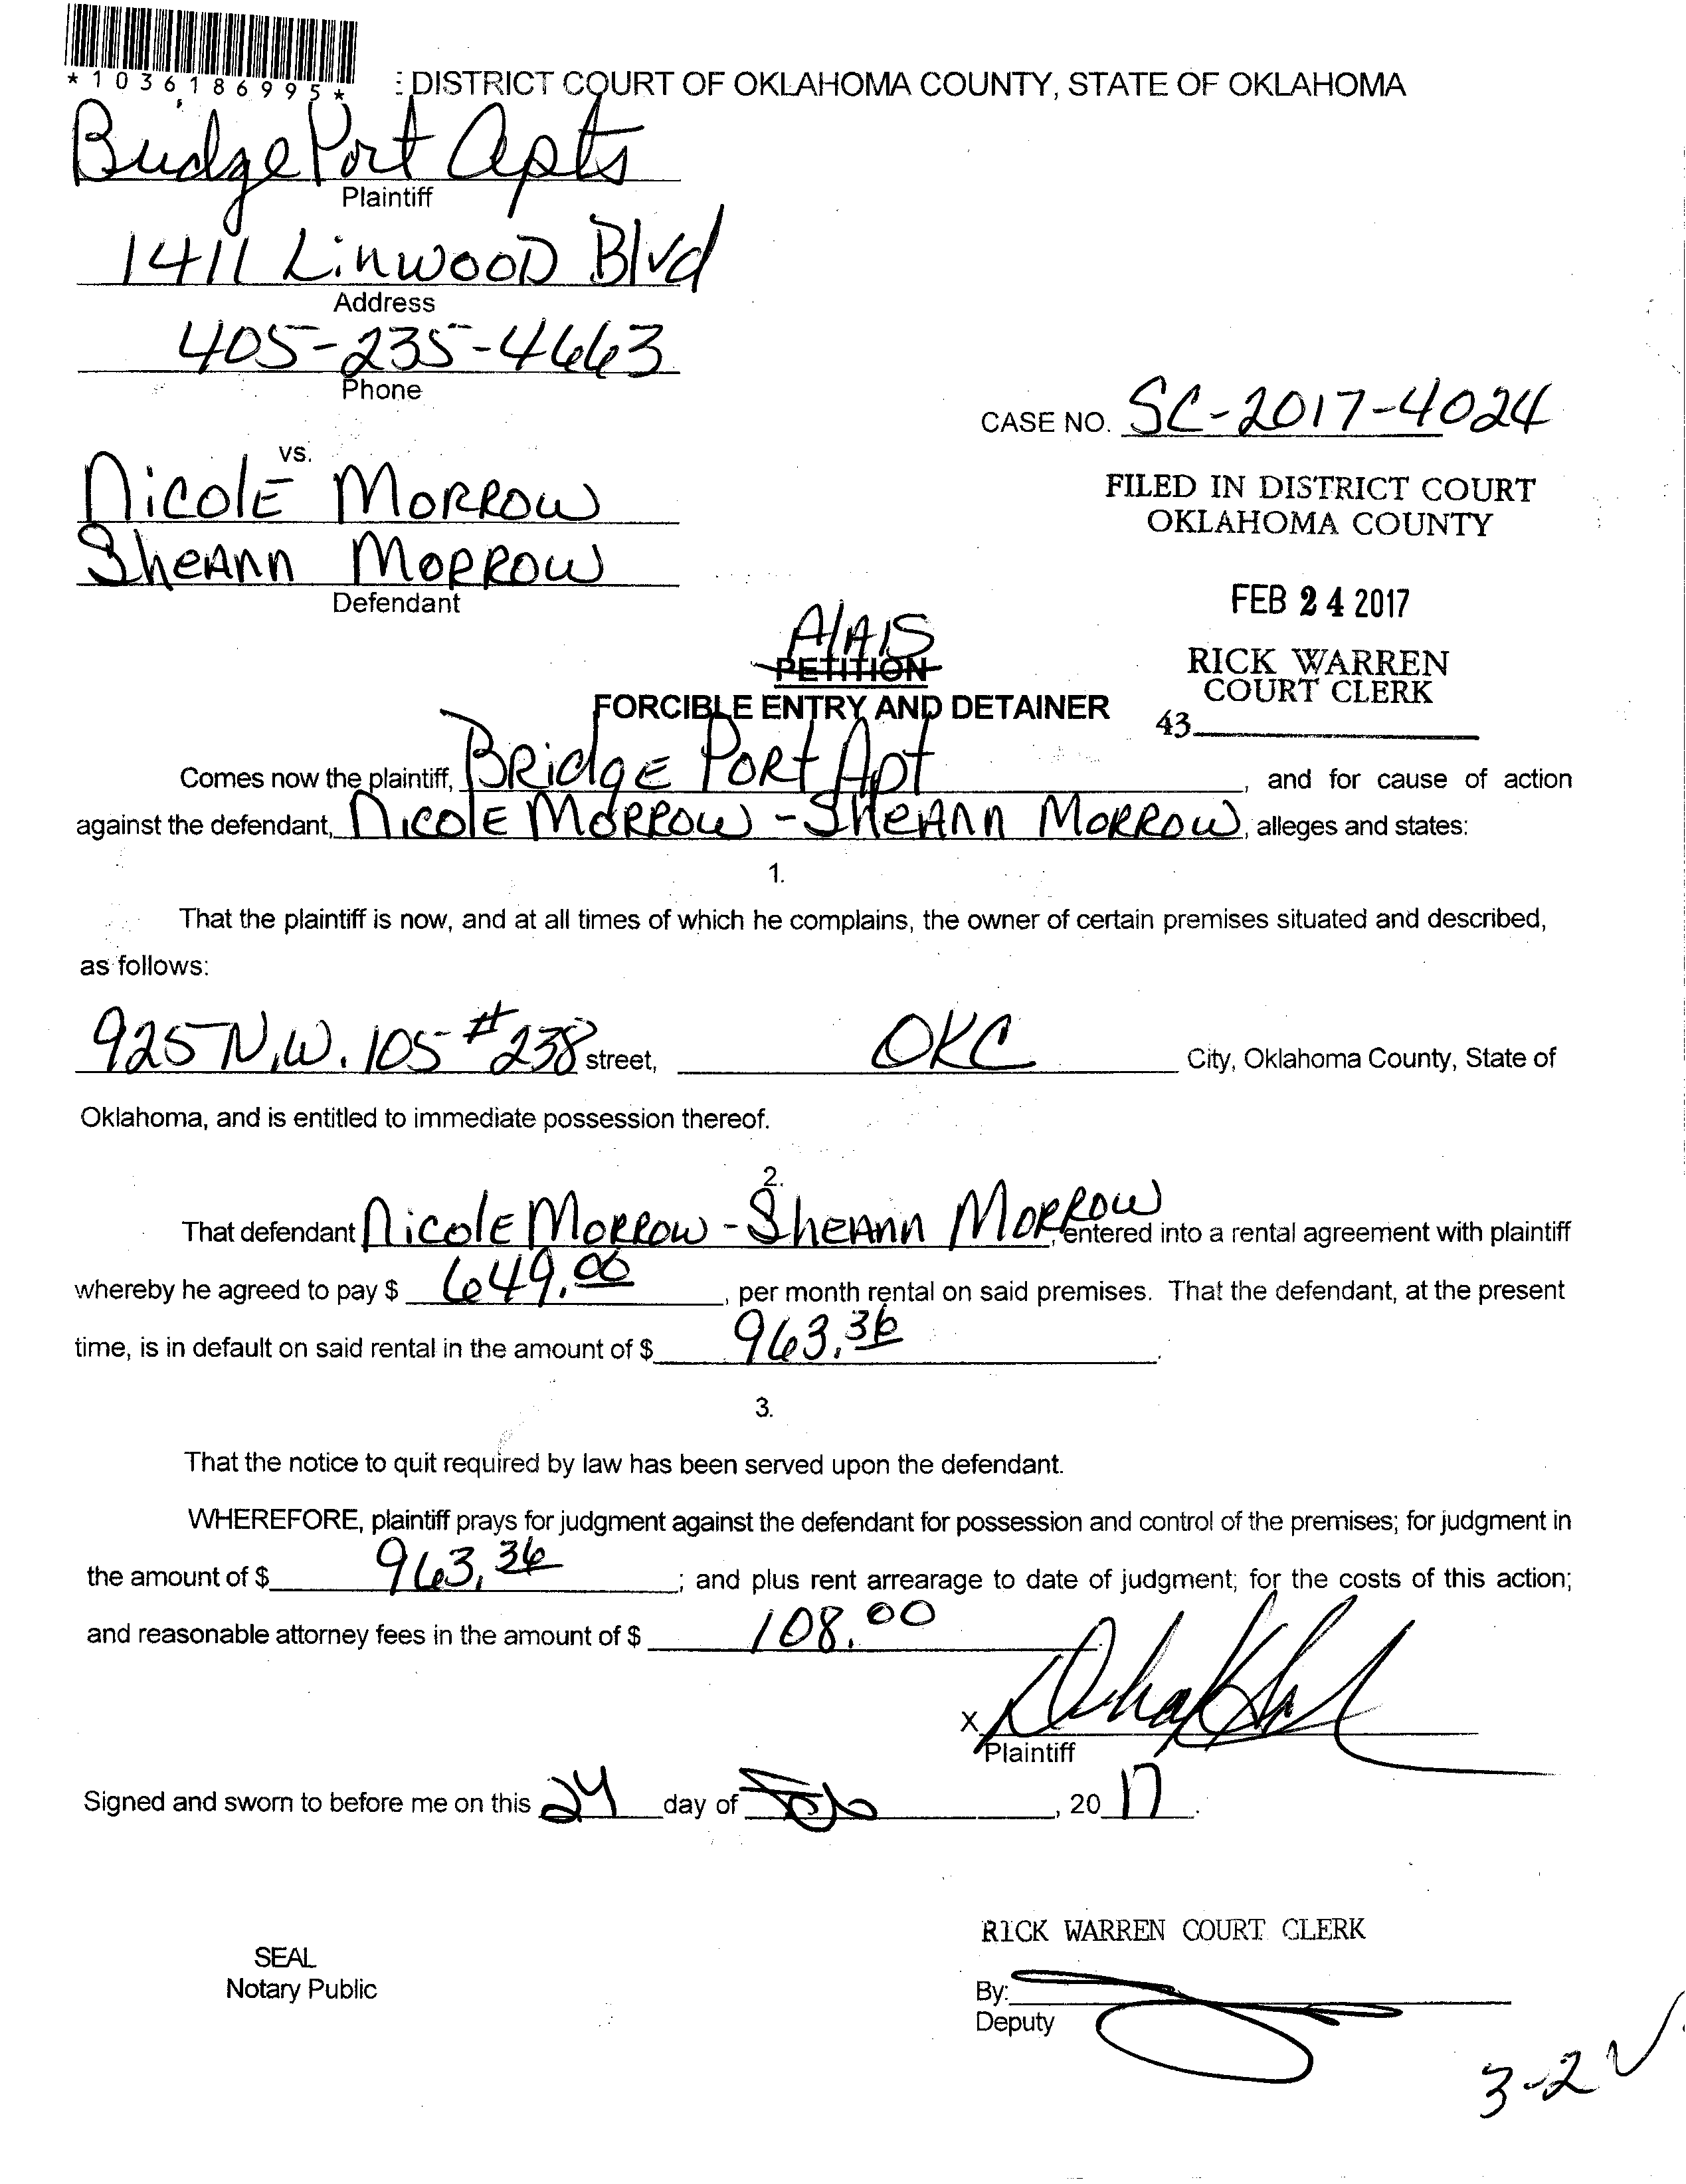 *1036186995*
: DISTRICT COURT OF OKLAHOMA COUNTY, STATE OF OKLAHOMA
BridgePort Apts
Plaintiff
1411 Linwood Blvd
Address
405-235-4663
Phone
CASE NO. SC-2017-4024
vs.
FILED IN DISTRICT COURT
OKLAHOMA COUNTY
Nicole Morrow
SheAnn Morrow
Defendant
FEB 24 2017
RICK WARREN
COURT CLERK
43
AlAIS
PETITION
FORCIBLE ENTRY AND DETAINER
Comes now the plaintiff, Bridge Port Apt, and for cause of action
against the defendant, Nicole Morrow - SheAnn Morrow, alleges and states:
1.
That the plaintiff is now, and at all times of which he complains, the owner of certain premises situated and described,
as follows:
925 N.W. 105 #238 street, OKC City, Oklahoma County, State of
Oklahoma, and is entitled to immediate possession thereof.
2.
That defendant Nicole Morrow - SheAnn Morrow, entered into a rental agreement with plaintiff
whereby he agreed to pay $ 649.00, per month rental on said premises. That the defendant, at the present
time, is in default on said rental in the amount of $ 963.36.
3.
That the notice to quit required by law has been served upon the defendant.
WHEREFORE, plaintiff prays for judgment against the defendant for possession and control of the premises; for judgment in
the amount of $ 963.36; and plus rent arrearage to date of judgment; for the costs of this action;
and reasonable attorney fees in the amount of $ 108.00
X
Plaintiff
Signed and sworn to before me on this 24 day of Feb, 20 17.
RICK WARREN COURT CLERK
SEAL
Notary Public
By:
Deputy
3-2 ✓